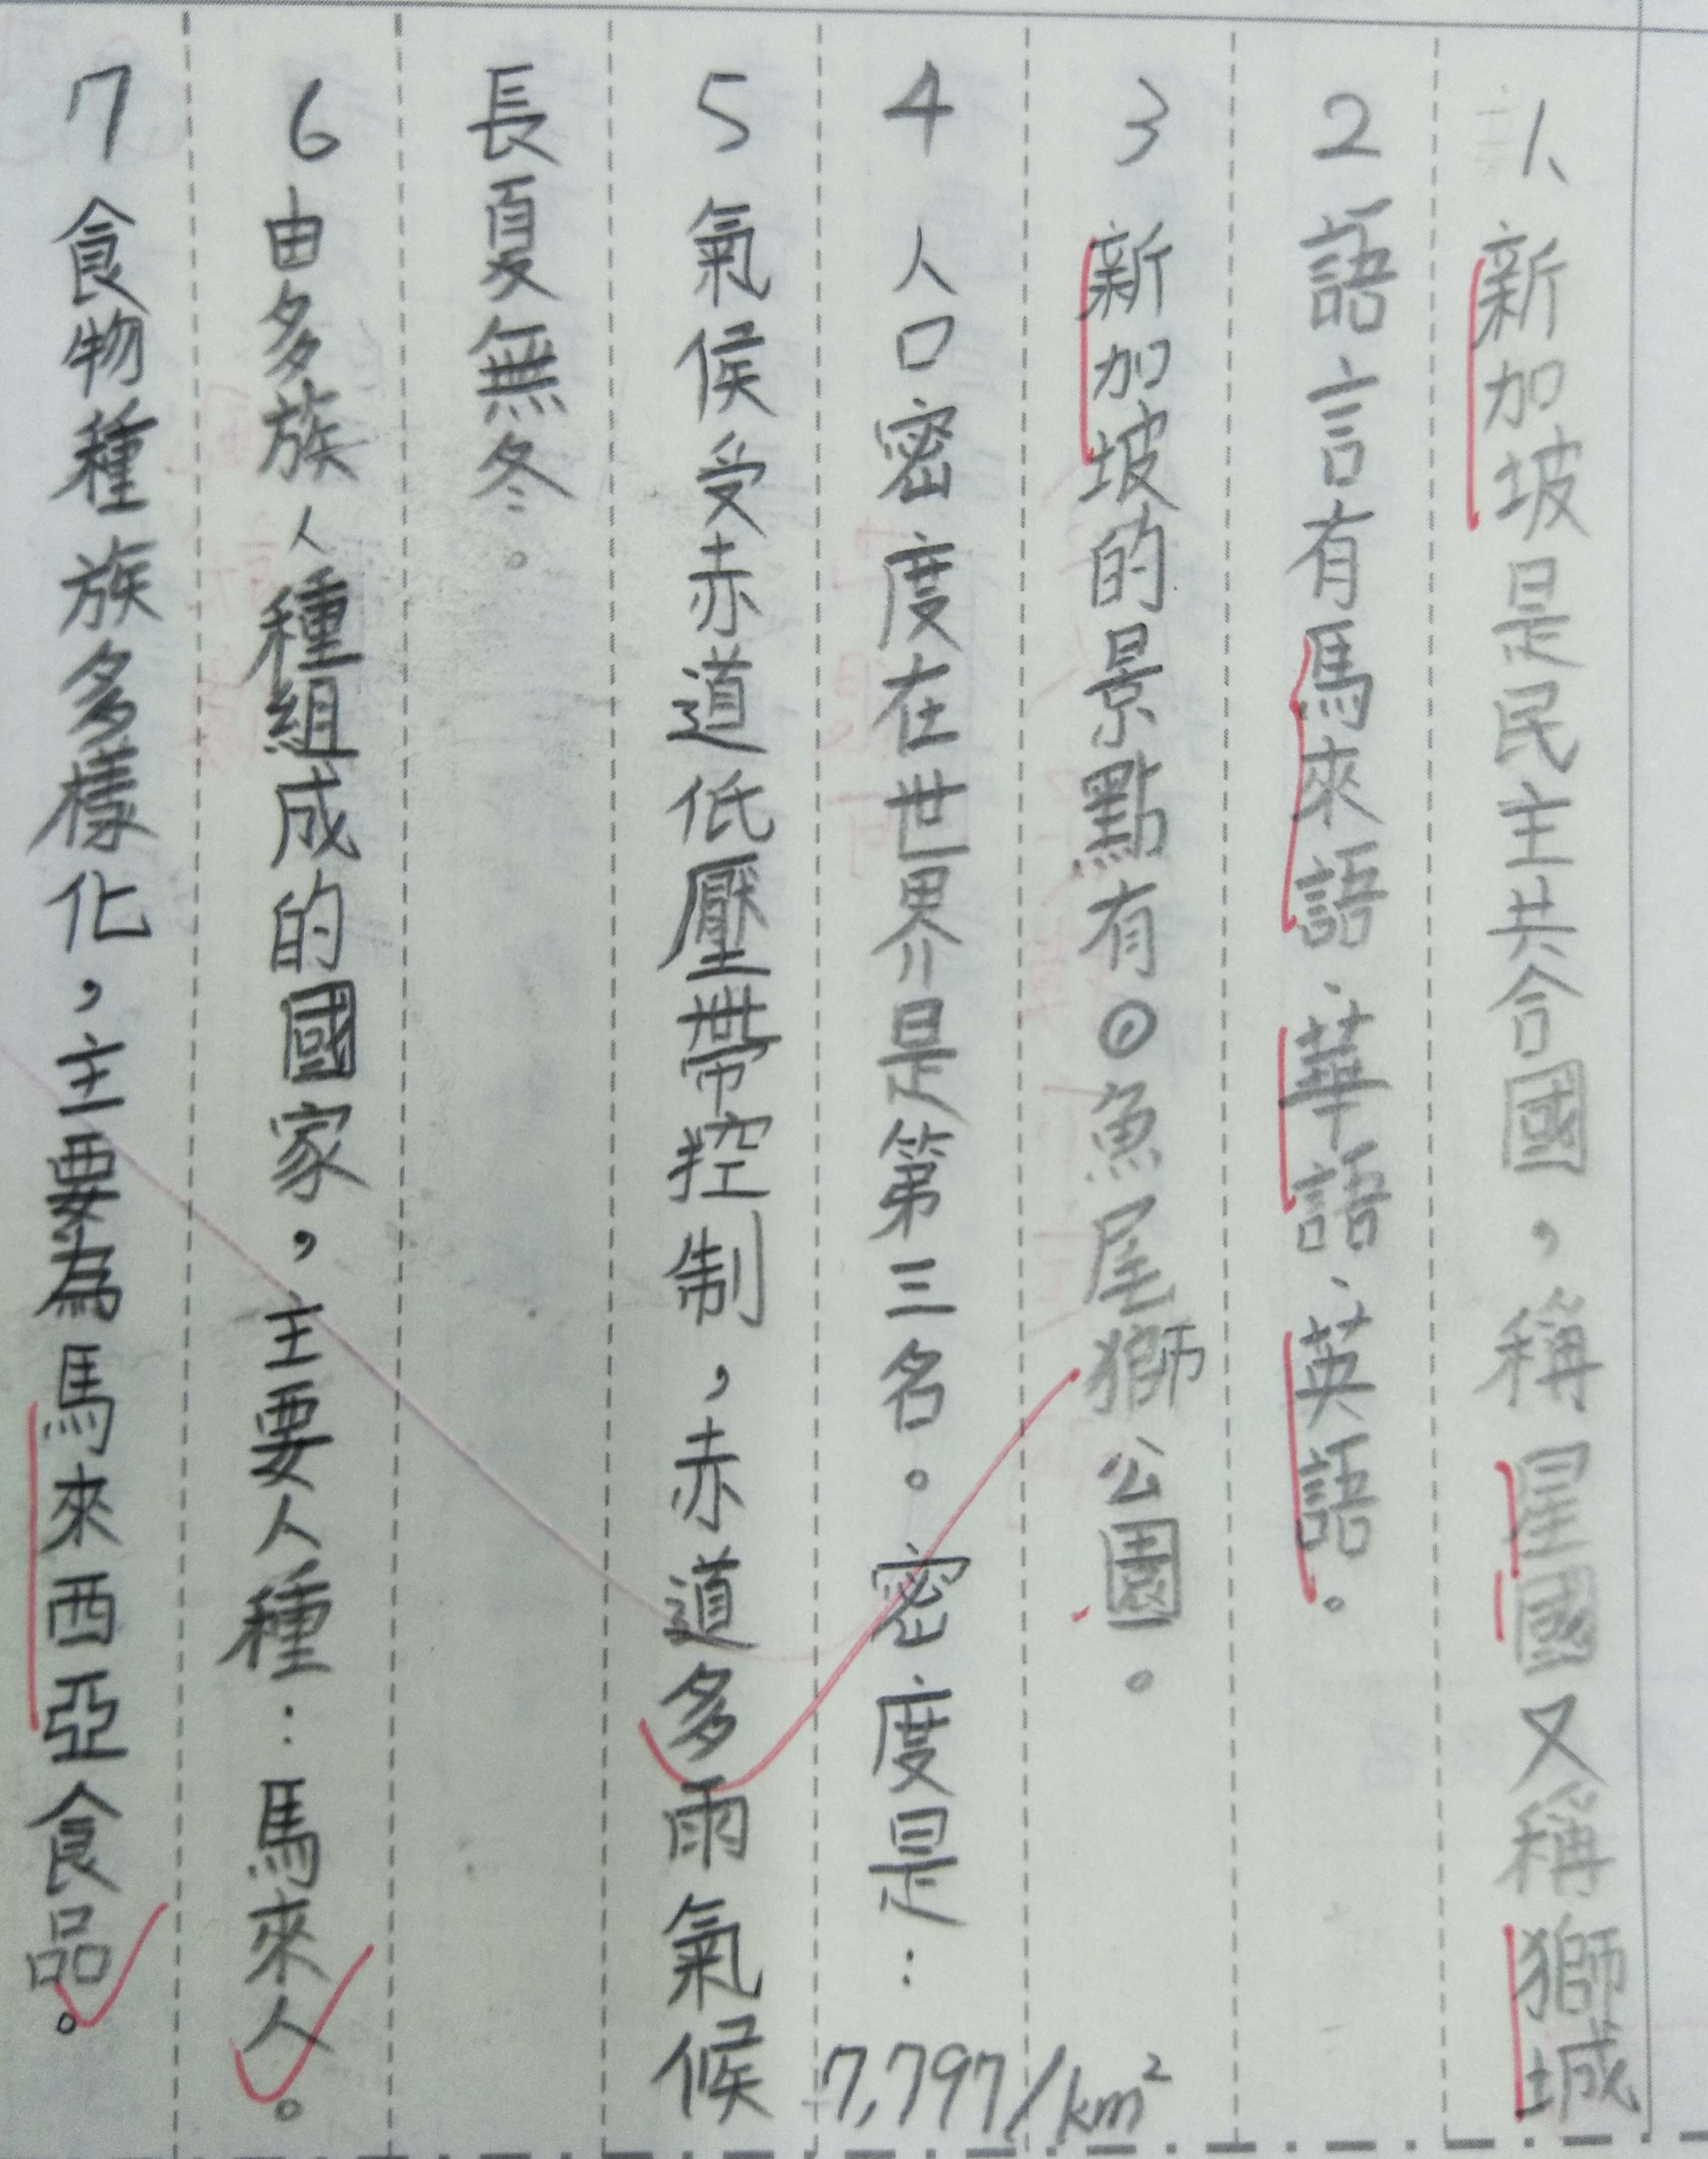 1、新加坡是民主共合國，稱星國又稱獅城
2語言有馬來語、華語、英語。
3新加坡的景點有⊙魚尾獅公園。
4人口密度在世界是第三名。密度是：7,797/km²
5氣侯受赤道低壓帶控制，赤道多雨氣候
長夏無冬。
6由多族人種組成的國家，主要人種：馬來人。
7食物種族多樣化，主要為馬來西亞食品。